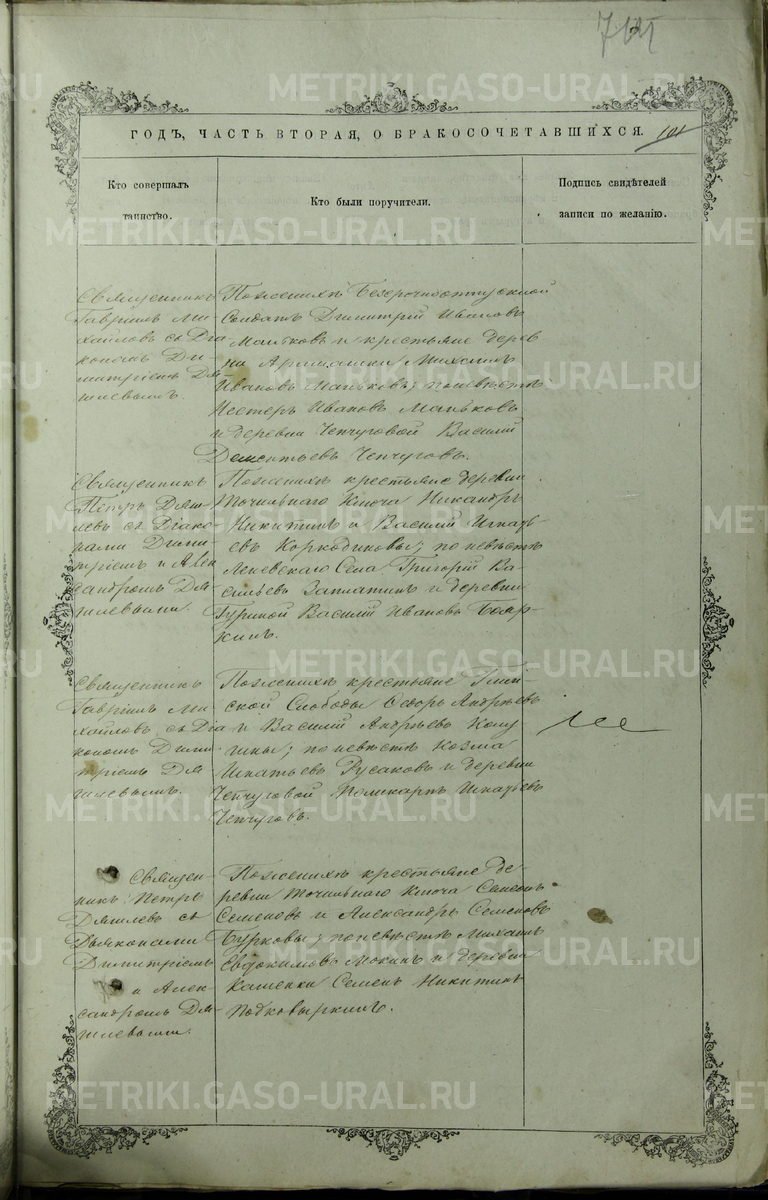 101
ГОДЪ, ЧАСТЬ ВТОРАЯ, О БРАКОСОЧЕТАВШИХСЯ.
Кто совершалъ
таинство.
Кто были поручители.
Подпись свидѣтелей
записи по желанію.
Священникъ
Гавріилъ Ми-
хайловъ съ Діа
кономъ Ди-
митріемъ
По женихѣ безсрочноотпускной
Солдатъ Димитрій Ивановъ
Маньковъ и крестьяне дерев
ни Арамашки Михаилъ
Ивановъ Маньковъ; по невѣстѣ
Нестеръ Ивановъ Маньковъ
и деревни Чепчуговой Василій
Дементьевъ Чепчуговъ.
Священникъ
Петръ
съ Діако-
нами Дими-
тріемъ и Алек
сандромъ
По женихѣ крестьяне деревни
Точильнаго Ключа Никандръ
Никитинъ и Василій Игнать-
евъ Коркодиновы; по невѣстѣ
Леневскаго Села Григорій Ва-
сильевъ Заплатинъ и деревни
Гуриной Василій Ивановъ Бояр-
кинъ.
Священникъ
Гавріилъ Ми-
хайловъ съ Діа
кономъ Дими
тріемъ
По женихѣ крестьяне
ской Слободы Ѳедоръ Андреевъ
и Василій Андреевъ
по невѣстѣ Козма
Игнатьевъ Русаковъ и деревни
Чепчуговой Поликарпъ Игнатьевъ
Чепчуговъ.
Священ-
никъ Петръ
съ
Дьяконами
Димитріемъ
и Алек-
сандромъ
По женихѣ крестьяне де
ревни Точильнаго Ключа Семенъ
Семеновъ и Александръ Семеновъ
Бурковы; по невѣстѣ Михаилъ
Евдокимовъ Мокинъ и деревни
Каменки Семенъ Никитинъ
Подковыркинъ.
METRIKI.GASO-URAL.RU